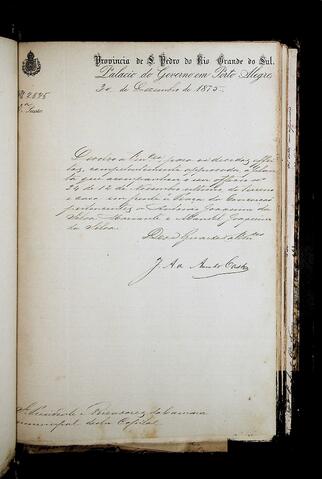 Provincia de S. Pedro do Rio Grande do Sul.
Palacio do Governo em Porto Alegre,
de Dezembro de 1875.
Nº 2895
Devolvo a Vmces para os devidos effei-
tos, competentemente approvada, a plan-
ta que acompanhou o seu officio
24 de 12 de Novembro ultimo do terreno
e casa em frente à Praça da Conceição
pertencentes a Antonio Joaquim da
Silva Mariante e Manoel Joaquim
da Silva.
Deos Guarde a Vmces
J. A. de
Presidente e Vereadores da Camara
municipal desta Capital